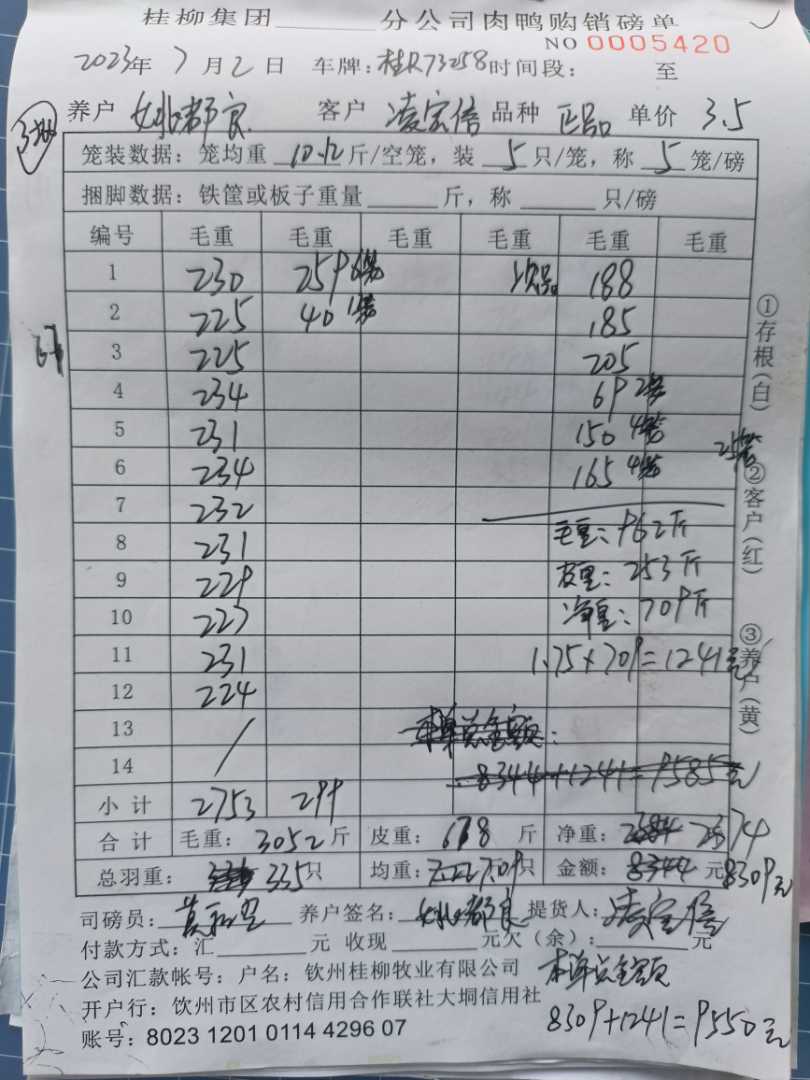 桂柳集团 分公司肉鸭购销磅单
NO 0005420
2023年 7 月 2 日 车牌：桂R73258 时间段： 至
养户 姚都良 客户 凌宏信 品种 正品 单价 3.5
笼装数据：笼均重 10.12 斤/空笼，装 5 只/笼，称 5 笼/磅
捆脚数据：铁筐或板子重量 斤，称 只/磅
编号 毛重 毛重 毛重 毛重 毛重 毛重
1 230 259 6笼 次品 188
2 225 40 1笼 185
3 225 205
67
4 234 69 2笼
5 231 150 4笼
25笼
6 234 165 4笼
7 232
8 231 毛重：962斤
9 229 皮重：253斤
10 227 净重：709斤
11 231 1.75×709=1241元
12 224
13 / 本单总金额：
14 8344+1241=9585元
小计 2753 299
合计 毛重：3052 斤 皮重：678 斤 净重：2374
总羽重： 335只 均重：7.09只 金额：8344 元 8309元
司磅员： 养户签名：姚都良 提货人：凌宏信
付款方式：汇 元 收现 元欠（余）： 元
公司汇款帐号：户名：钦州桂柳牧业有限公司 本单总金额
开户行：饮州市区农村信用合作联社大垌信用社
8309+1241=9550元
账号：8023 1201 0114 4296 07
①存根（白） ②客户（红） ③养户（黄）